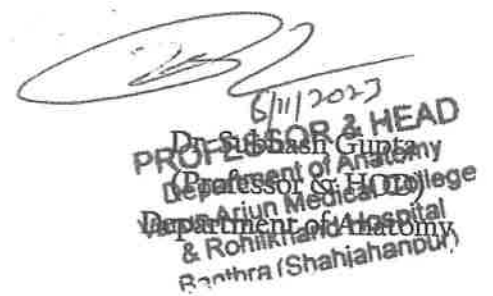 6/11/2023
Dr. Subhash Gupta
(Professor & HOD)
Department of Anatomy
PROFESSOR & HEAD
Department of Anatomy
Varun Arjun Medical College
& Rohilkhand Hospital
Banthra (Shahjahanpur)